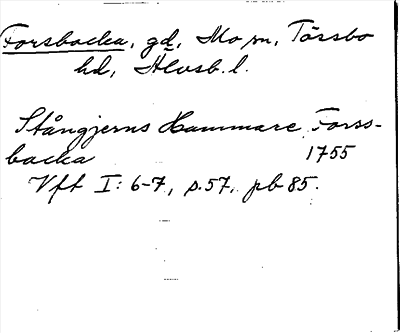 Forsbacka, gd, Mo sn, Tössbo
hd, Älvsb. l.
Stångjerns Hammare Forss-
backa 1755
Vft I: 6-7, s. 57, pb 85.